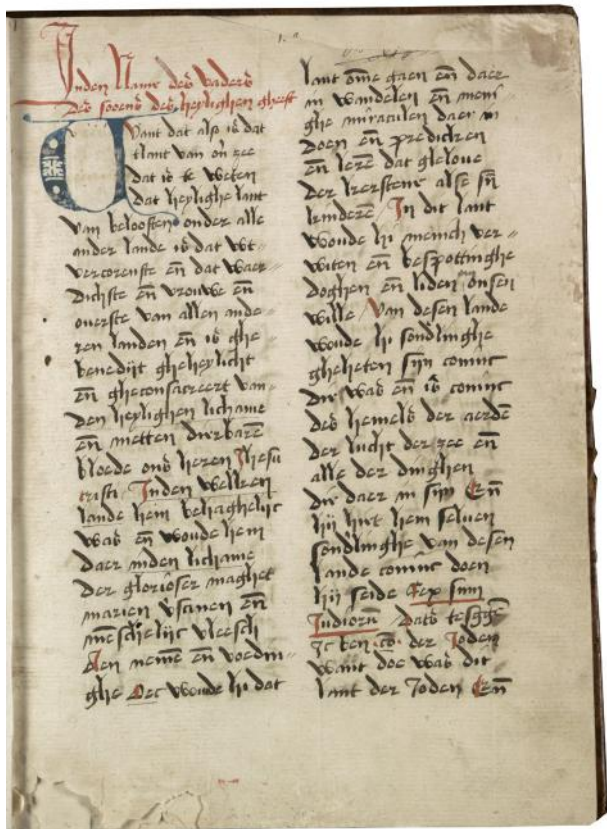 Inden Name des vaders
Des soens des heylighen gheest
Want dat also is dat
tlant van oũ zee
dat is te weten
Dat heylighe lant
Van beloosten onder alle
ander lande is dat wt
vercorenste eñ dat waer
Dichste eñ vrouwe eñ
ouerste van allen ande
ren landen eñ is ghe
benedijt gheheylicht
eñ gheconsacreert van
den heylighen lichame
eñ metten dierbarē
bloede ons heren Jhesu
cristi Inden welken
lande hem behaghelijc
was eñ woude hem
daer inden lichame
Der glorioser maghet
marien eñ
mēschelijc vleesch
nemē eñ voedin
ghe Oec woude hi dat
lant ōme gaen eñ daer
in wandelen eñ meni
ghe miraculen daer in
doen eñ predicken
eñ lerē dat gheloue
der kerstene alse sÿn
kinderē In dit lant
woude hi menich ver
witen eñ bespottinghe
doghen eñ liden om onsen
wille Van desen lande
woude hi sondlinghe
ghehieten sijn coninc
die was eñ is coninc
des hemels der aerdē
der lucht der zee eñ
alle der dinghen
die daer in sijn Eñ
hij hiet hem seluen
sondlinghe van desen
lande coninc doen
hij seide Rex sum
Judiorū Dats tesggē
Ic ben cō der Joden
want doe was dit
lant der Joden Eñ